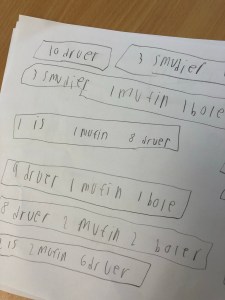 10 druer
3 smudier
3 smudier 1 mufin 1 bole
1 is 1 mufin 8 druer
9 druer 1 mufin 1 bole
8 druer 2 mufin 2 boler
is 2 mufin 6 druer